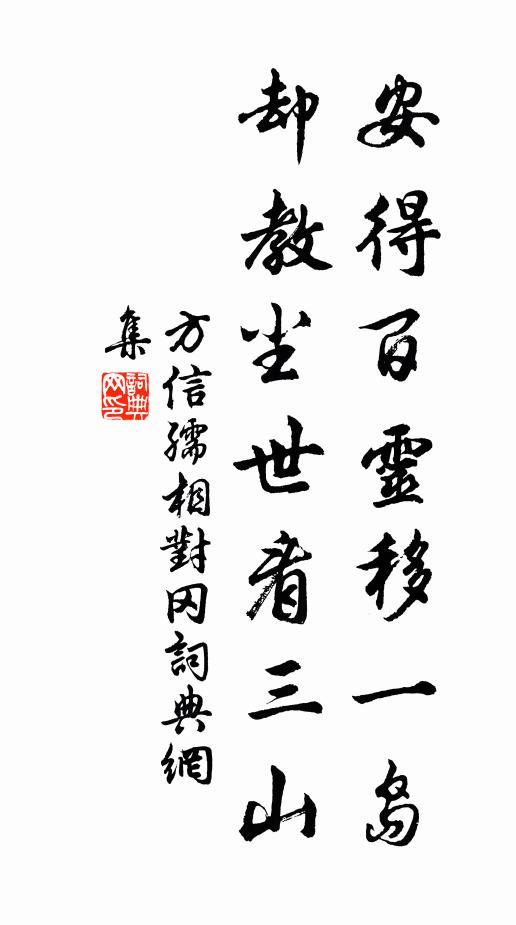 安得百靈移一島
却教尘世看三山
方信孺相對冈詞典網
集
詞典
网印